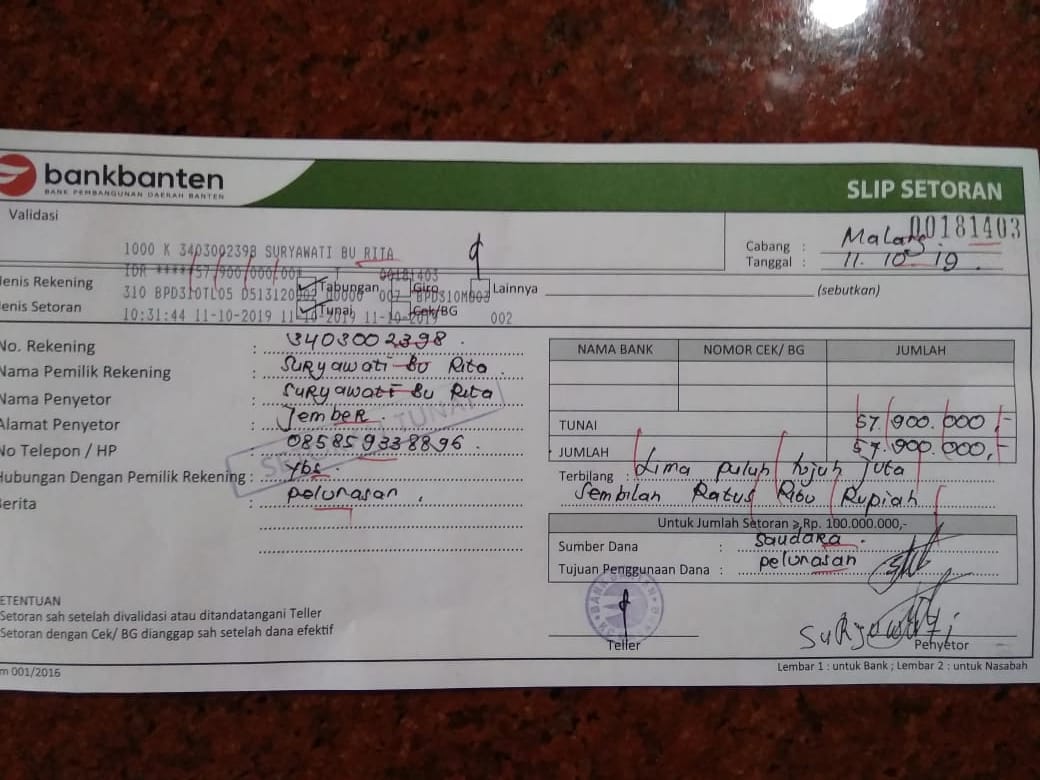 bankbanten
BANK PEMBANGUNAN DAERAH BANTEN
SLIP SETORAN
Validasi
00181403
1000 K 3403002398 SURYAWATI BU RITA
Cabang : Malang
IDR ****57,900,000.00 T 00181403
Tanggal : 11. 10. 19.
enis Rekening
Tabungan Giro Lainnya (sebutkan)
310 BPD310TL05 D513120002 00000 007 BPD310M003
enis Setoran
Tunai Cek/BG
10:31:44 11-10-2019 11-10-2019 11-10-2019 002
No. Rekening : 3403002398.
Nama Pemilik Rekening : Suryawati Bu Rita
Nama Penyetor : Suryawati Bu Rita
Alamat Penyetor : Jember.
No Telepon / HP : 085859338896.
Hubungan Dengan Pemilik Rekening : Ybs.
erita : pelunasan.
SETORAN TUNAI
NAMA BANK NOMOR CEK/ BG JUMLAH
TUNAI 57.900.000,-
JUMLAH 57.900.000,-
Terbilang : Lima puluh tujuh juta
Sembilan Ratus Ribu Rupiah
Untuk Jumlah Setoran ≥ Rp. 100.000.000,-
Sumber Dana : Saudara.
Tujuan Penggunaan Dana : pelunasan
ETENTUAN
Setoran sah setelah divalidasi atau ditandatangani Teller
Setoran dengan Cek/ BG dianggap sah setelah dana efektif
Teller
Suryawati
Penyetor
m 001/2016
Lembar 1 : untuk Bank ; Lembar 2 : untuk Nasabah